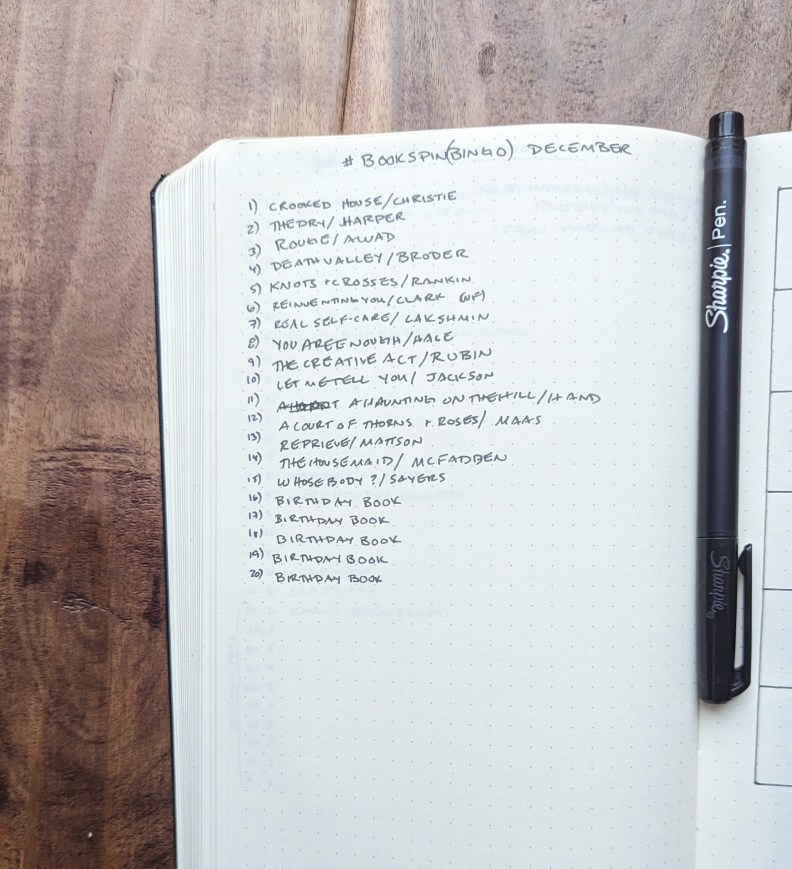 # BOOKSPIN(BINGO) DECEMBER
1) CROOKED HOUSE/CHRISTIE
2) THE DRY/HARPER
3) ROUGE/AWAD
4) DEATH VALLEY/BRODER
5) KNOTS + CROSSES/RANKIN
6) REINVENTING YOU/CLARK (NF)
7) REAL SELF-CARE/LAKSHMIN
8) YOU ARE ENOUGH/HALE
9) THE CREATIVE ACT/RUBIN
10) LET ME TELL YOU/JACKSON
11) A HAUNTING ON THE HILL/HAND
12) A COURT OF THORNS + ROSES/MAAS
13) REPRIEVE/MATTSON
14) THE HOUSEMAID/MCFADDEN
15) WHOSE BODY?/SAYERS
16) BIRTHDAY BOOK
17) BIRTHDAY BOOK
18) BIRTHDAY BOOK
19) BIRTHDAY BOOK
20) BIRTHDAY BOOK
Sharpie. Pen.
Sharpie